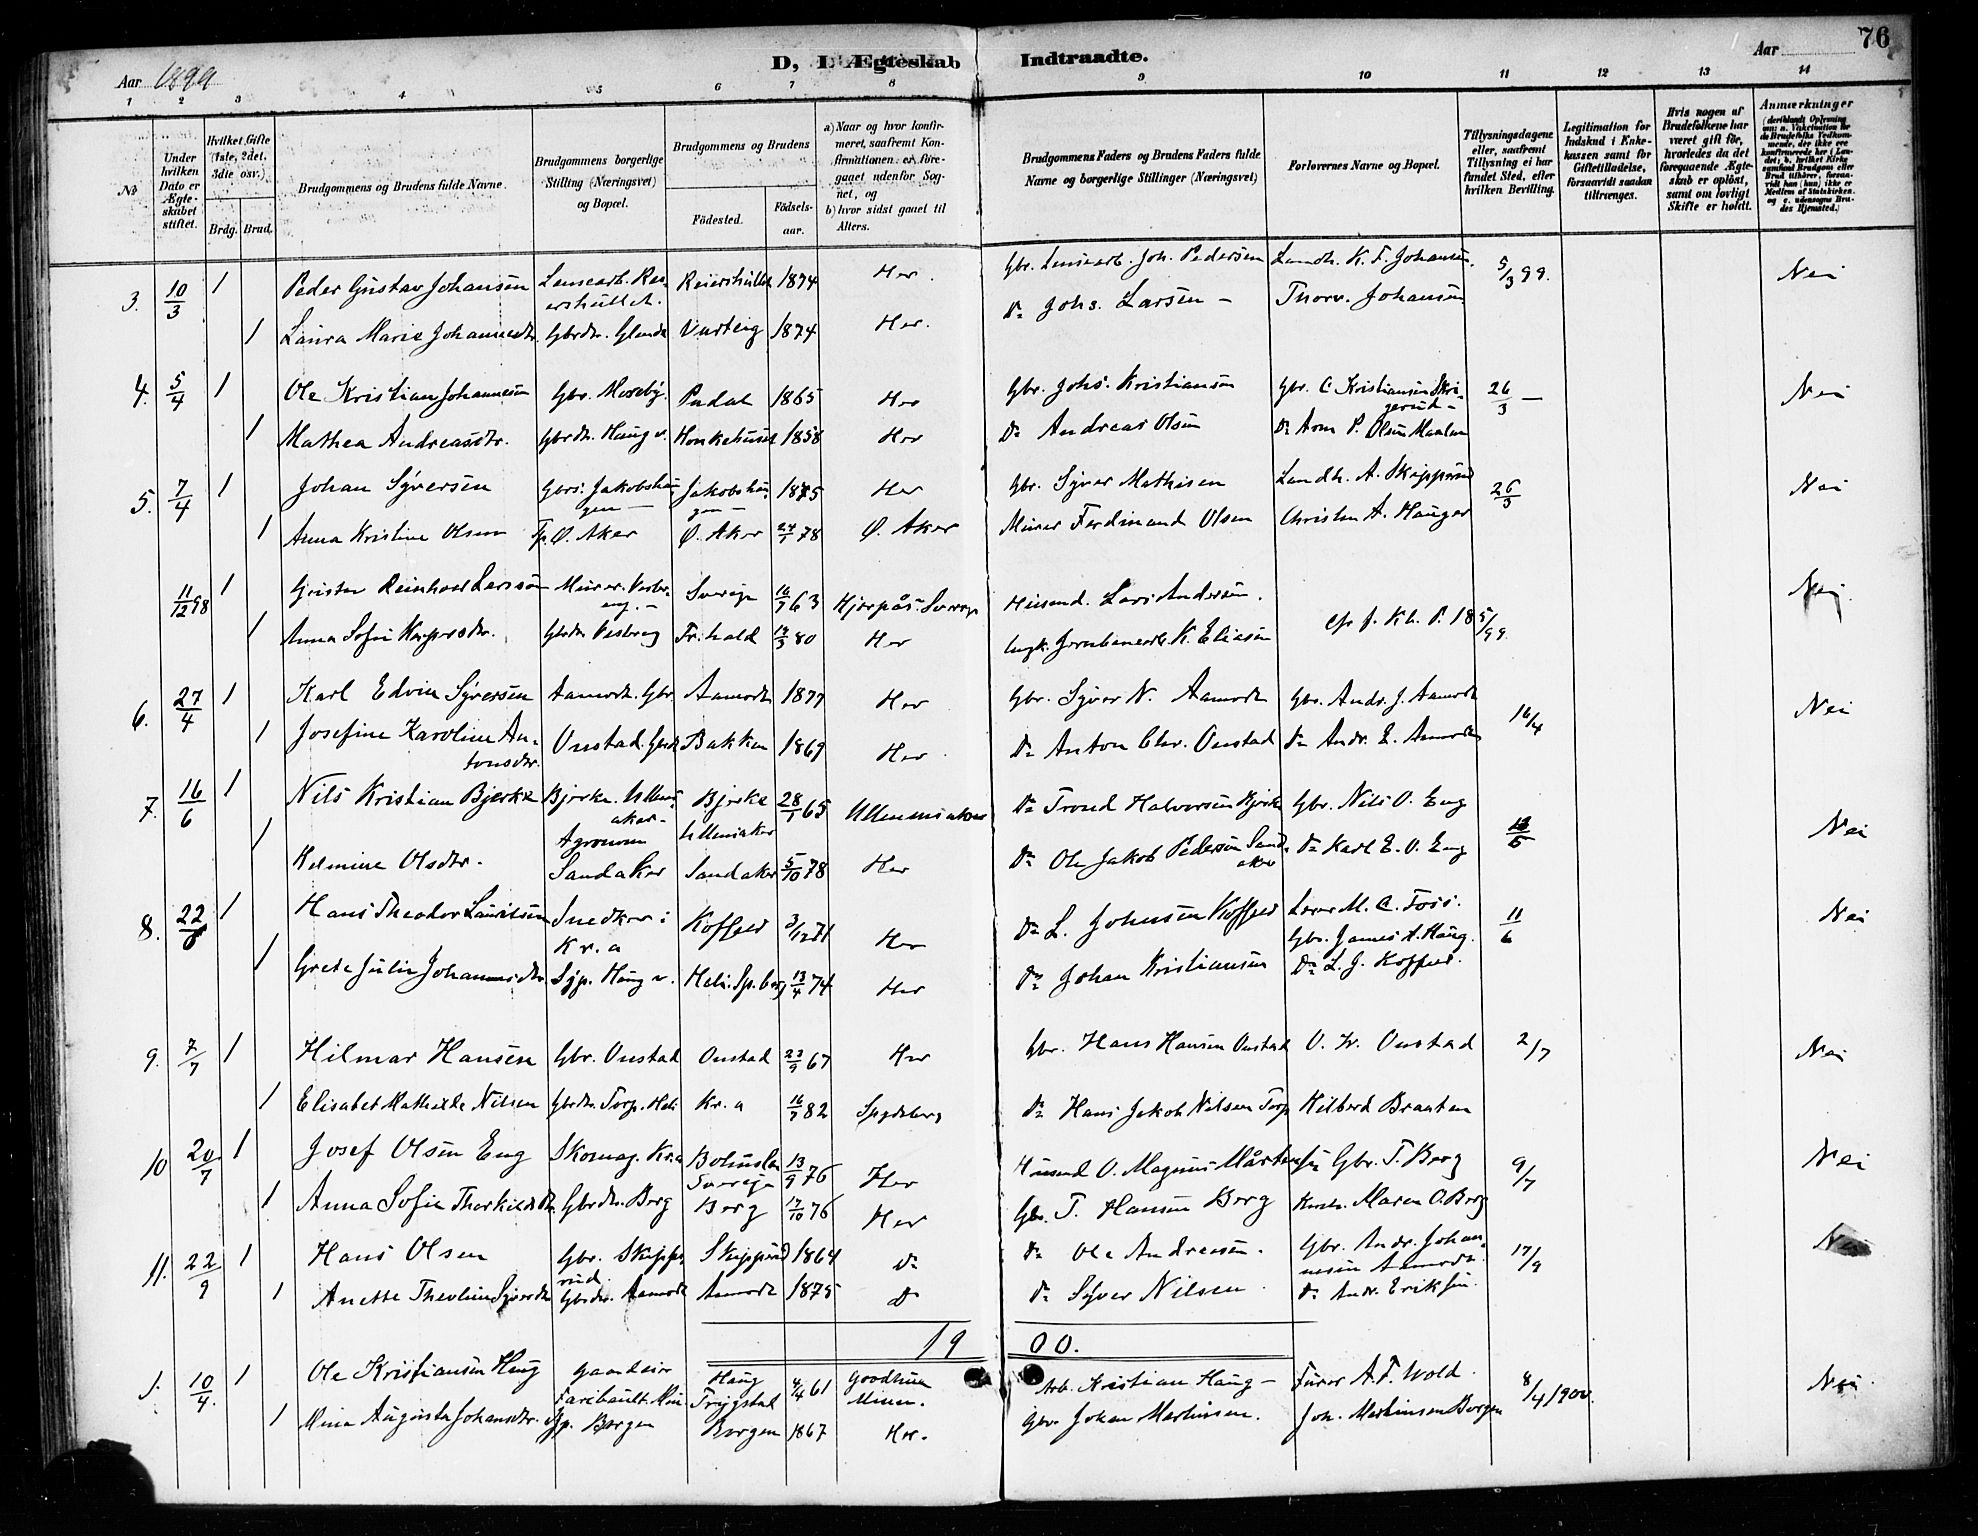 76
Aar 1899
D, I Ægteskab Indtraadte.
Aar
1 2 3 4 5 6 7 8 9 10 11 12 13 14
No
Under hvilken Dato er Ægteskabet stiftet.
Hvilket Gifte (1ste, 2det, 3die osv.).
Brdg. Brud.
Brudgommens og Brudens fulde Navne.
Brudgommens borgerlige Stilling (Næringsvei) og Bopæl.
Brudgommens og Brudens
Fødested.
Fødselsaar.
a) Naar og hvor konfirmeret, saafremt Konfirmationen er foregaaet udenfor Sognet, og
b) hvor sidst gaaet til Alters.
Brudgommens Faders og Brudens Faders fulde Navne og borgerlige Stillinger (Næringsvei)
Forlovernes Navne og Bopæl.
Tillysningsdagene eller, saafremt Tillysning ei har fundet Sted, efter hvilken Bevilling.
Legitimation for Indskud i Enkekassen samt for Giftetilladelse, forsaavidt saadan tiltrænges.
Hvis nogen af Brudefolkene har været gift før, hvorledes da det foregaaende Ægteskab er opløst, samt om lovligt Skifte er holdt.
Anmærkninger
3. 10/3 1 Peder Gustav Johansen Lensearb. Reiershullet. Reiershullet 1874 Her. Gbr. Lensearb. Joh. Pedersen Landh. K. F. Johansen. 5/3 99. Nei
1 Laura Marie Johannesdtr. Gbrdtr. Glende Varteig 1874 Her. Do Johs. Larsen - Thorv. Johansen
4. 5/4 1 Ole Kristian Johannesen Gbr. Moseby. 1865 Her Gbr. Johs. Kristiansen Gbr. C. Kristiansen Skrigerud - 26/3 - Nei
1 Mathea Andreasdtr. Gbrdtr. Haug v. Honkehuset 1858 Her Do Andreas Olsen Do Arm P. Olsen
5. 7/4 1 Johan Syversen Gbrs. Jakobshaugen - Jakobshaugen - 1875 Her Gbr. Syver Mathisen Landh. A. Skipperud 26/3 Nei
1 Anna Kristine Olsen Tp. Ø. Aker Ø. Aker 24/1 78 Ø. Aker Murer Ferdinand Olsen Christen A. Hauger
11/12 98 1 Gustav Reinhold Larsson Murer. Vesbreng. - Sverige 16/7 63 Hjerpås. Sverige Husmd. Lars Andersen. Nei.
1 Anna Sofie Kaspersdtr. Gbrdtr Vesbreng Fr.hald 14/3 80 Her Ungk. Jernbanearb. K. Eliasen
6. 27/4 1 Karl Edvin Syversen Aamodt. Gbr. Aamodt 1877 Her Gbr. Syver N. Aamodt Gbr. Andr. J. Aamodt 16/4 Nei
1 Josefine Karoline Antonsdtr. Onstad. Gbrdtr Bakken 1869 Her Do Anton Chr. Onstad Do Andr. E. Aamodt
7. 16/6 1 Nils Kristian Bjerke Bjerke. Ullensaker - Agronom Bjerke Ullensaker 28/1 65 Ullensaker Do Trond Halvorsen Bjerke Gbr. Nils O. Eng Nei
1 Helmine Olsdtr. Sandaker Sandaker 5/10 78 Her Do Ole Jakob Pedersen Sandaker Do Karl E. O. Eng
8. 22/6 1 Hans Theodor Lauritsen Snedker i Kr.a Koffeed 3/12 71 Her Do L. Johnsen Koffeed Lærer M. C. Foss. Gbr. James A. Haug. 11/6 Nei
1 Grete Julie Johannesdtr Syp. Haug v. Heli. Sp.berg 13/4 74 Her Do Johan Kristiansen Do L. J. Koffeed.
9. 7/7 1 Hilmar Hansen Gbr. Onstad Onstad 23/9 67 Her Gbr. Hans Hansen Onstad O. H. Onstad 2/7 Nei
1 Elisabet Mathilde Nilsen Gbrdtr. Torp. Heli Kr.a 16/7 82 Spydeberg Do Hans Jakob Nilsen Torp Hilbert Braaten
10 20/7 1 Josef Olsen Eng Skomag. Kr.a Bohuslen Sverige 13/9 76 Her Husmd O. Magnus Mårtensen Gbr. T. Berg 9/7 Nei
1 Anna Sofie Thorkildsdtr. Gbrdtr. Berg Berg 17/10 76 Her Gbr. T. Hansen Berg Maren O. Berg
11. 22/9 1 Hans Olsen Gbr. Skipperud Skipperud 1864 Do Do Ole Andreasen. Gbr. Andr. Johannesen Aamodt. 17/9 Nei
1 Anette Theoline Syversdtr Gbrdtr. Aamodt Aamodt 1875 Do Do Syver Nilsen. Do Andr. Eriksen.
1900.
1. 10/4. 1 Ole Kristiansen Haug Gaardeier Faribault. Min Haug Trygstad 4/4 61 Goodhue Minn. Arb. Kristian Haug - Furer A. F. Wold. 8/4 1900. Nei
1 Mina Augusta Johansdtr. Syp. Borgen Borgen 1867 Her. Gbr. Johan Martinsen. Joh. Martinsen Borgen